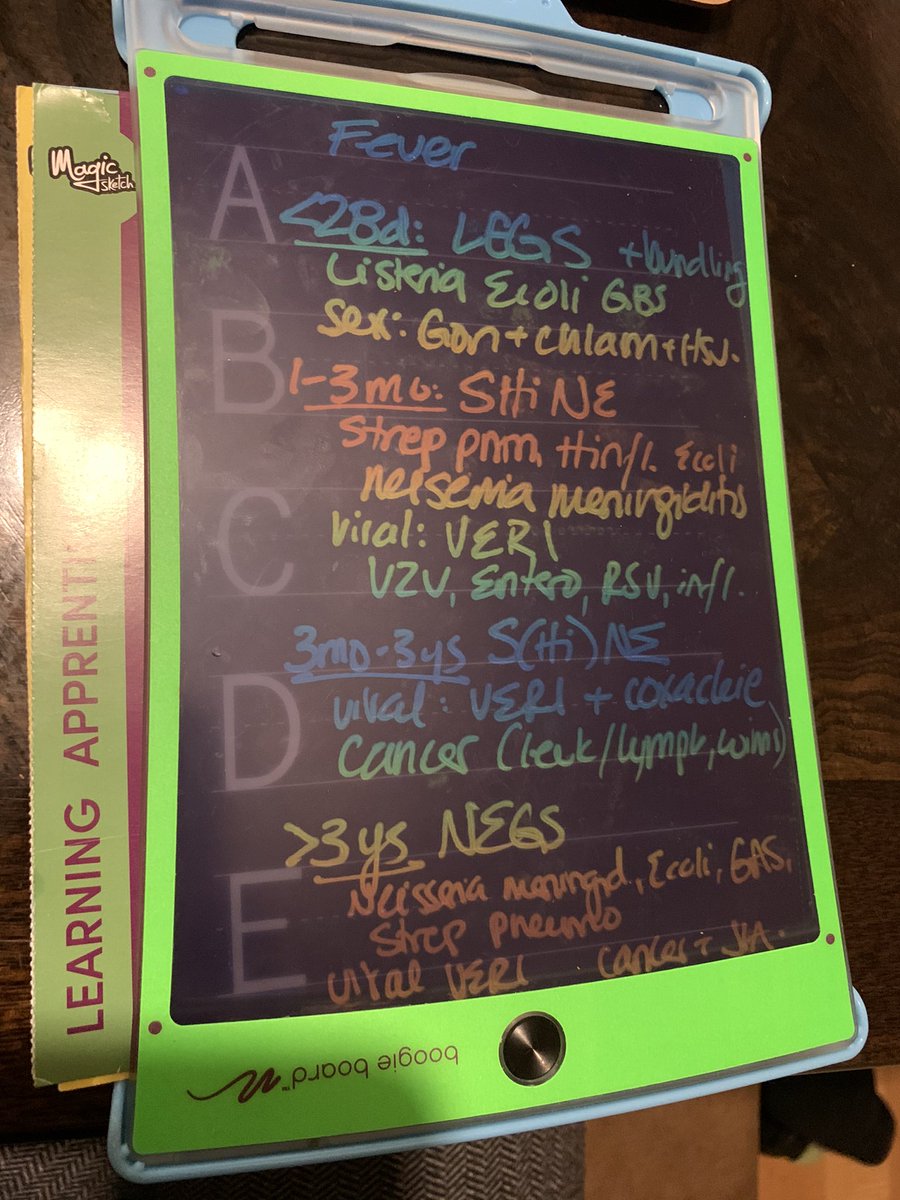 Magic
Sketch
LEARNING APPRENTI
A
B
C
D
E
Fever
<28d: LEGS +bundling
Listeria Ecoli GBS
Sex: Gon + Chlam + HSV.
1-3mo: SHiNE
Strep pnm, Hinfl. Ecoli
Neisseria meningiditis
Viral: VERI
VZV, Entero, RSV, infl.
3mo-3ys S(Hi)NE
viral: VERI + coxackie
Cancer (leuk/lymph, wilms)
>3ys NEGS
Neisseria meningid., Ecoli, GAS,
Strep pneumo
Viral VERI Cancer + JIA.
boogie board™